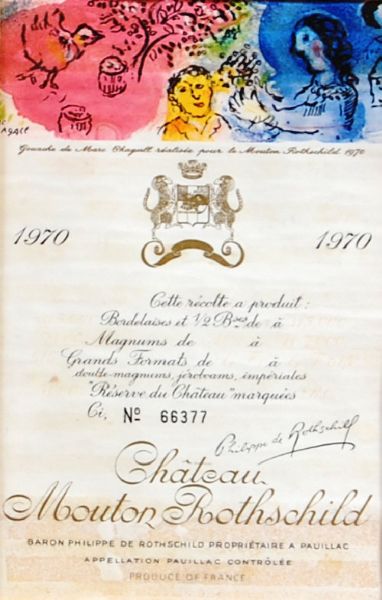 Gouache de Marc Chagall réalisée pour le Mouton Rothschild 1970
1970 1970
Cette récolte a produit :
Bordelaises et 1/2 Bses de à
Magnums de à
Grands Formats de à
double-magnums, jéroboams, impériales
"Réserve du Château" marquées
Ci, Nº 66377
Philippe de Rothschild
Château
Mouton Rothschild
BARON PHILIPPE DE ROTHSCHILD PROPRIÉTAIRE A PAUILLAC
APPELLATION PAUILLAC CONTRÔLÉE
PRODUCE OF FRANCE